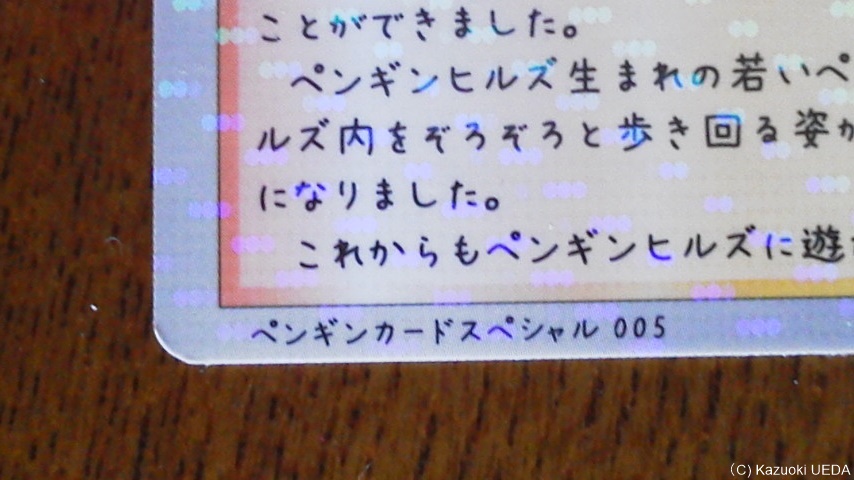 ことができました。
ペンギンヒルズ生まれの若いペ
ルズ内をぞろぞろと歩き回る姿が
になりました。
これからもペンギンヒルズに遊
ペンギンカードスペシャル 005
(C) Kazuoki UEDA